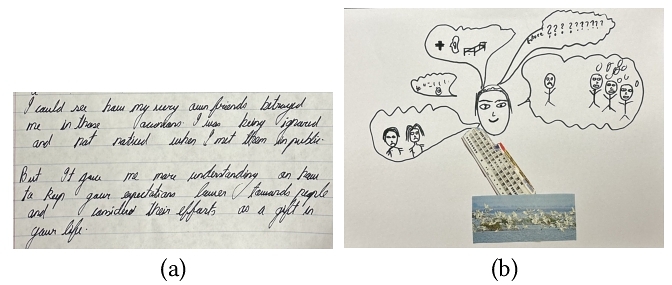 I could see how my very own friends betrayed
me in those occasions. I was being ignored
and not noticed when I met them in public.
But It gave me more understanding on how
to keep your expectations lower towards people
and considered their efforts as a gift in
your life.
future ? ? ? ? ? ? ? ? ? ?
(a)
(b)